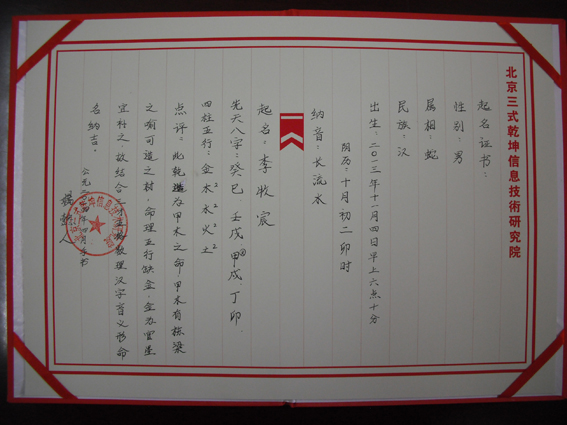 北京三式乾坤信息技术研究院
起名证书:
性别:男
民族:汉
属相:蛇
出生:二〇一三年十一月四日早上六点十分
阴历:十月初二卯时
纳音:长流水
起名:李牧宸
先天八字:癸巳、壬戌、甲戌、丁卯、
四柱五行:金 木2 水2 火2 土2
点评:此乾造为甲木之命,甲木有栋梁
之喻可造之材,命理五行缺金,金为官星
宜补之,故结合数理汉字音义形命
名纳吉。